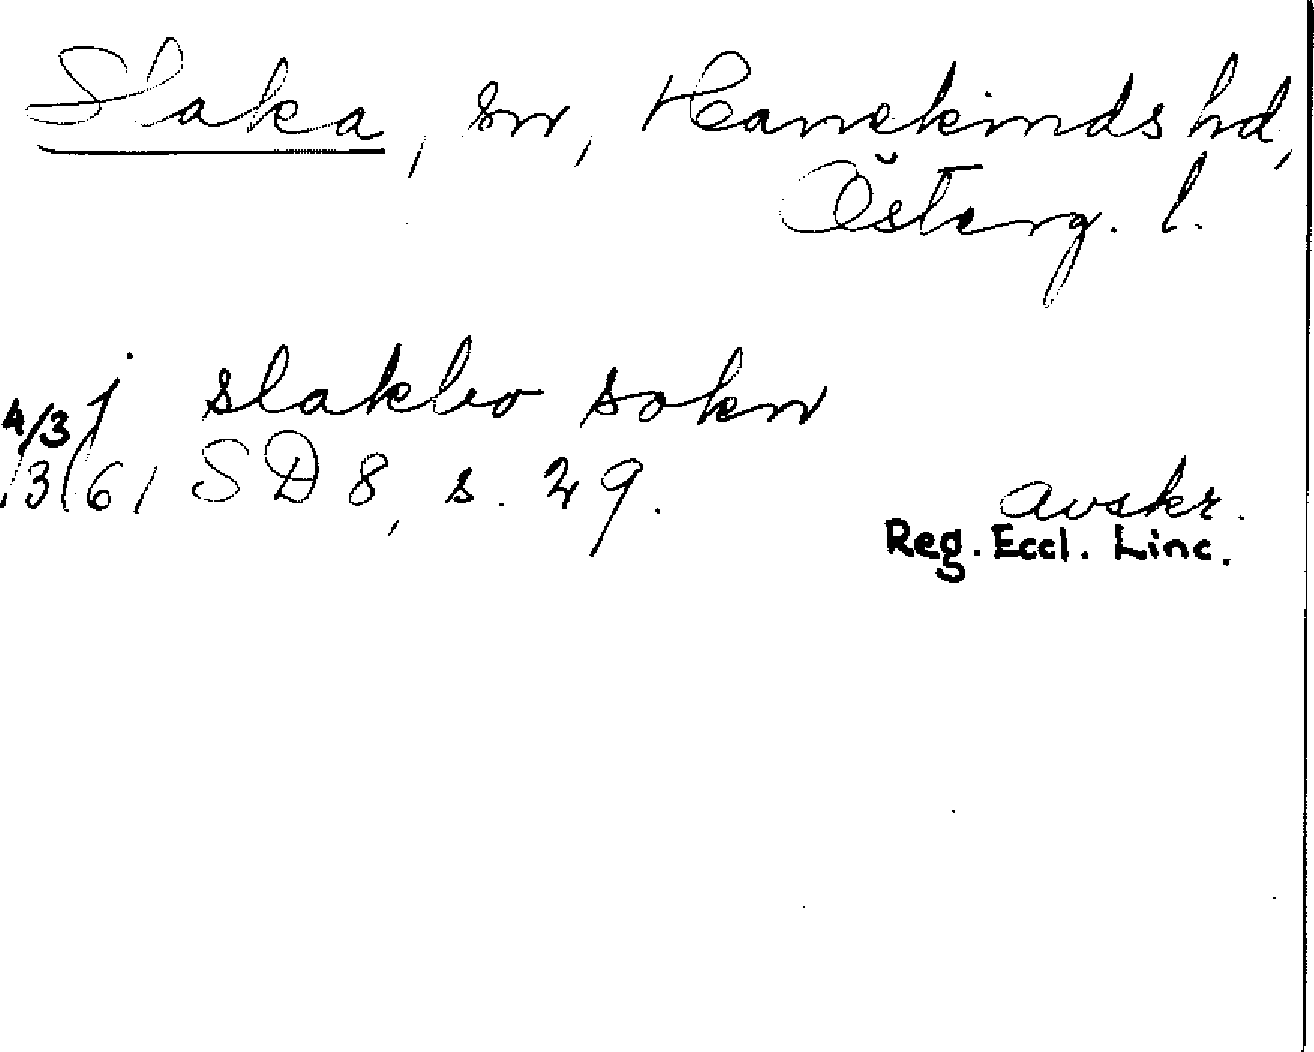 Slaka, sn, Hanekinds hd,
Österg. l.
j slakbo sokn
4/3
1361 SD 8, s. 29. avskr.
Reg. Eccl. Linc.